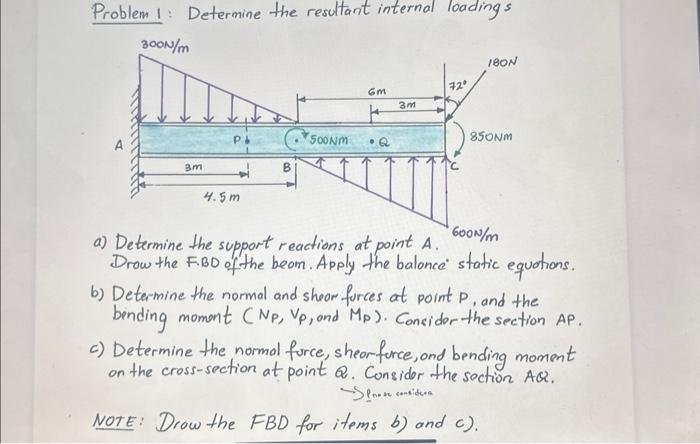 Problem 1: Determine the resultant internal loadings
300N/m
180N
72°
6m
3m
A
P
500Nm
Q
850Nm
3m
B
C
4.5m
600N/m
a) Determine the support reactions at point A.
Draw the F.B.D of the beam. Apply the balance static equations.
b) Determine the normal and shear forces at point P, and the
bending moment (Np, Vp, and Mp). Consider the section AP.
c) Determine the normal force, shear force, and bending moment
on the cross-section at point Q. Consider the section AQ.
NOTE: Draw the FBD for items b) and c).